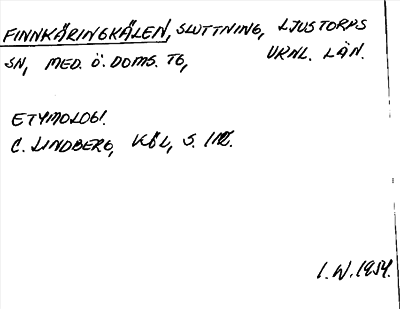 FINNKÄRINGKÄLEN, SLUTTNING, LJUSTORPS
SN, MED. Ö. DOMS. TG, VRNL. LÄN.
ETYMOLOGI.
C. LINDBERG, KÖL, S.
I.W. 1954.